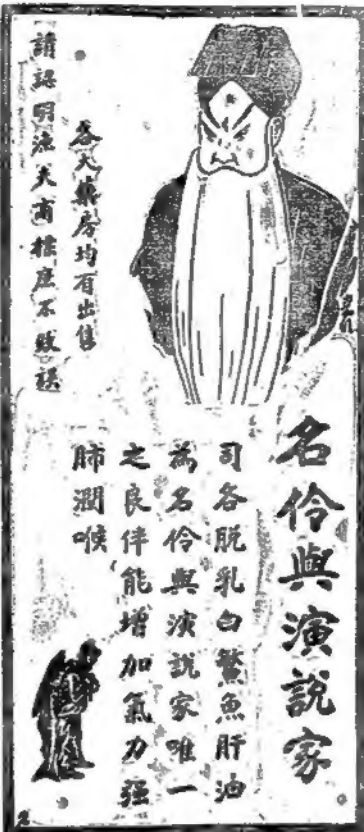 名伶與演說家
司各脱乳白鰵魚肝油
為名伶與演說家唯一
之良伴能增加氣力强
肺潤喉
各大藥房均有出售
請認明漁夫商標庶不致誤